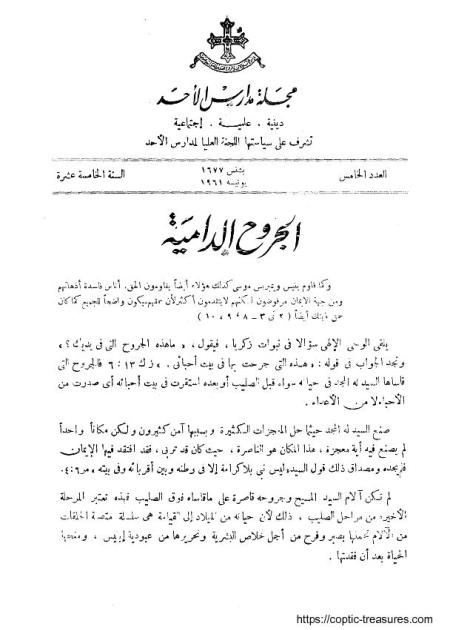 مجلة مدارس الأحد
دينية . علمية . إجتماعية
تشرف على سياستها اللجنة العليا لمدارس الأحد
العدد الخامس
بشنس ١٦٧٧
يونيه ١٩٦١
السنة الخامسة عشرة
الجروح الدامية
وكما قاوم ينيس ويمبريس موسى كذلك هؤلاء أيضاً يقاومون الحق. أناس فاسدة أذهانهم
ومن جهة الإيمان مرفوضون لكنهم لا يتقدمون أكثر لأن حمقهم سيكون واضحاً للجميع كما كان
حمق ذينك أيضاً ( ٢ تى ٣ - ٨ ، ٩ ، ١٠ )
يلقى الوحى الإلهى سؤالا فى نبوات زكريا، فيقول ، « ما هذه الجروح التى فى يديك ؟ »
ونجد الجواب فى قوله : « هذه التى جرحت بها فى بيت أحبائى . » زك ١٣ : ٦ فالجروح التى
قاساها السيد له المجد فى حياته سواء قبل الصليب أو بعده استقرت فى بيت أحبائه أى صدرت من
الأحباء لا من الأعداء .
صنع السيد له المجد حيثما حل المعجزات الكثيرة وبسببها آمن كثيرون ولكن مكاناً واحداً
لم يصنع فيه أية معجزة ، هذا المكان هو الناصرة ، حيث كان قد تربى ، فقد افتقد فيها الإيمان
فلم يجده ومصداق ذلك قول السيد « ليس نبى بلا كرامة إلا فى وطنه وبين أقربائه وفى بيته » مر ٦:٤.
لم تكن آلام السيد المسيح وجروحه قاصرة على ما قاساه فوق الصليب فهذه تعتبر المرحلة
الأخيرة من مراحل الصليب ، ذلك لأن حياته من الميلاد إلى القيامة هى سلسلة متصلة الحلقات
من الآلام تحملها بصبر وفرح من أجل خلاص البشرية وتحريرها من عبودية إبليس ، ومنحها
الحياة بعد أن فقدتها .
https://coptic-treasures.com